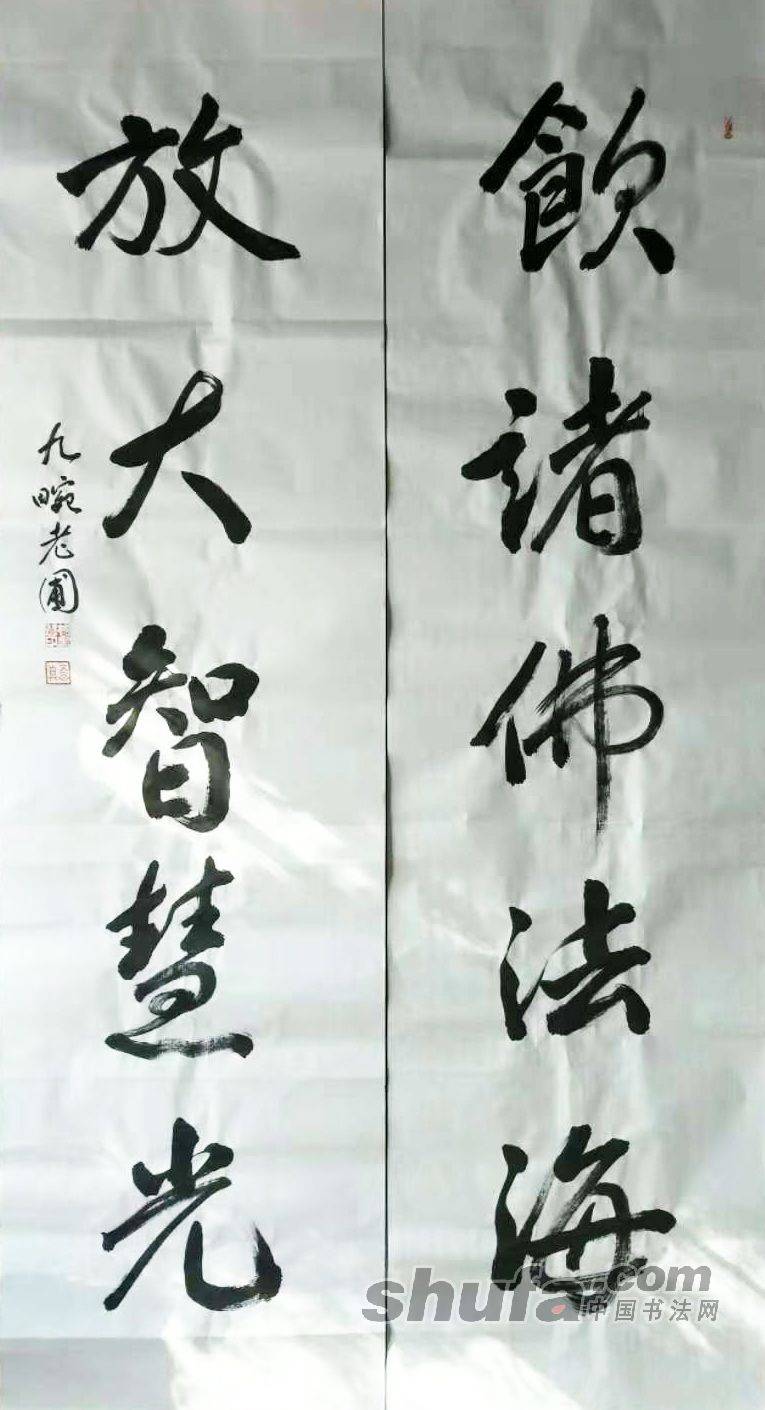 飲諸佛法海
放大智慧光
九畹老圃
shufa.com
中国书法网